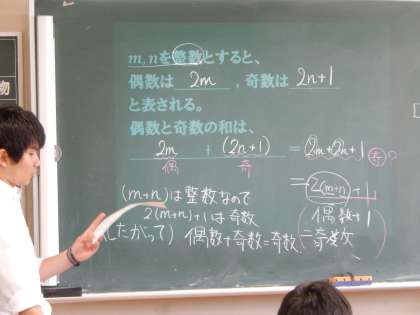 物
m, nを整数とすると、
偶数は 2m , 奇数は 2n+1
と表される。
偶数と奇数の和は、
2m + (2n+1) = 2m+2n+1 奇?
偶 奇
= 2(m+n)+1
(m+n)は整数なので
2(m+n)+1は奇数
(偶数+1
したがって) 偶数+奇数=奇数
=奇数)